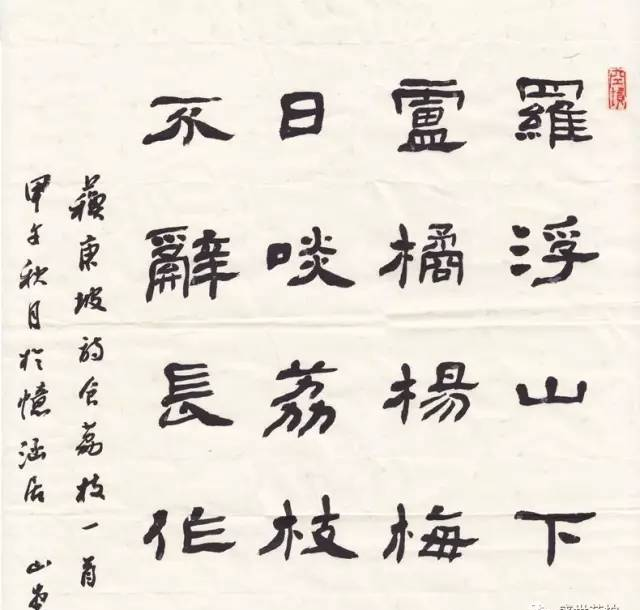 羅浮山下
盧橘楊梅
日啖荔枝
不辭長作
蘇東坡詩食荔枝一首
甲午秋月於憶涵居